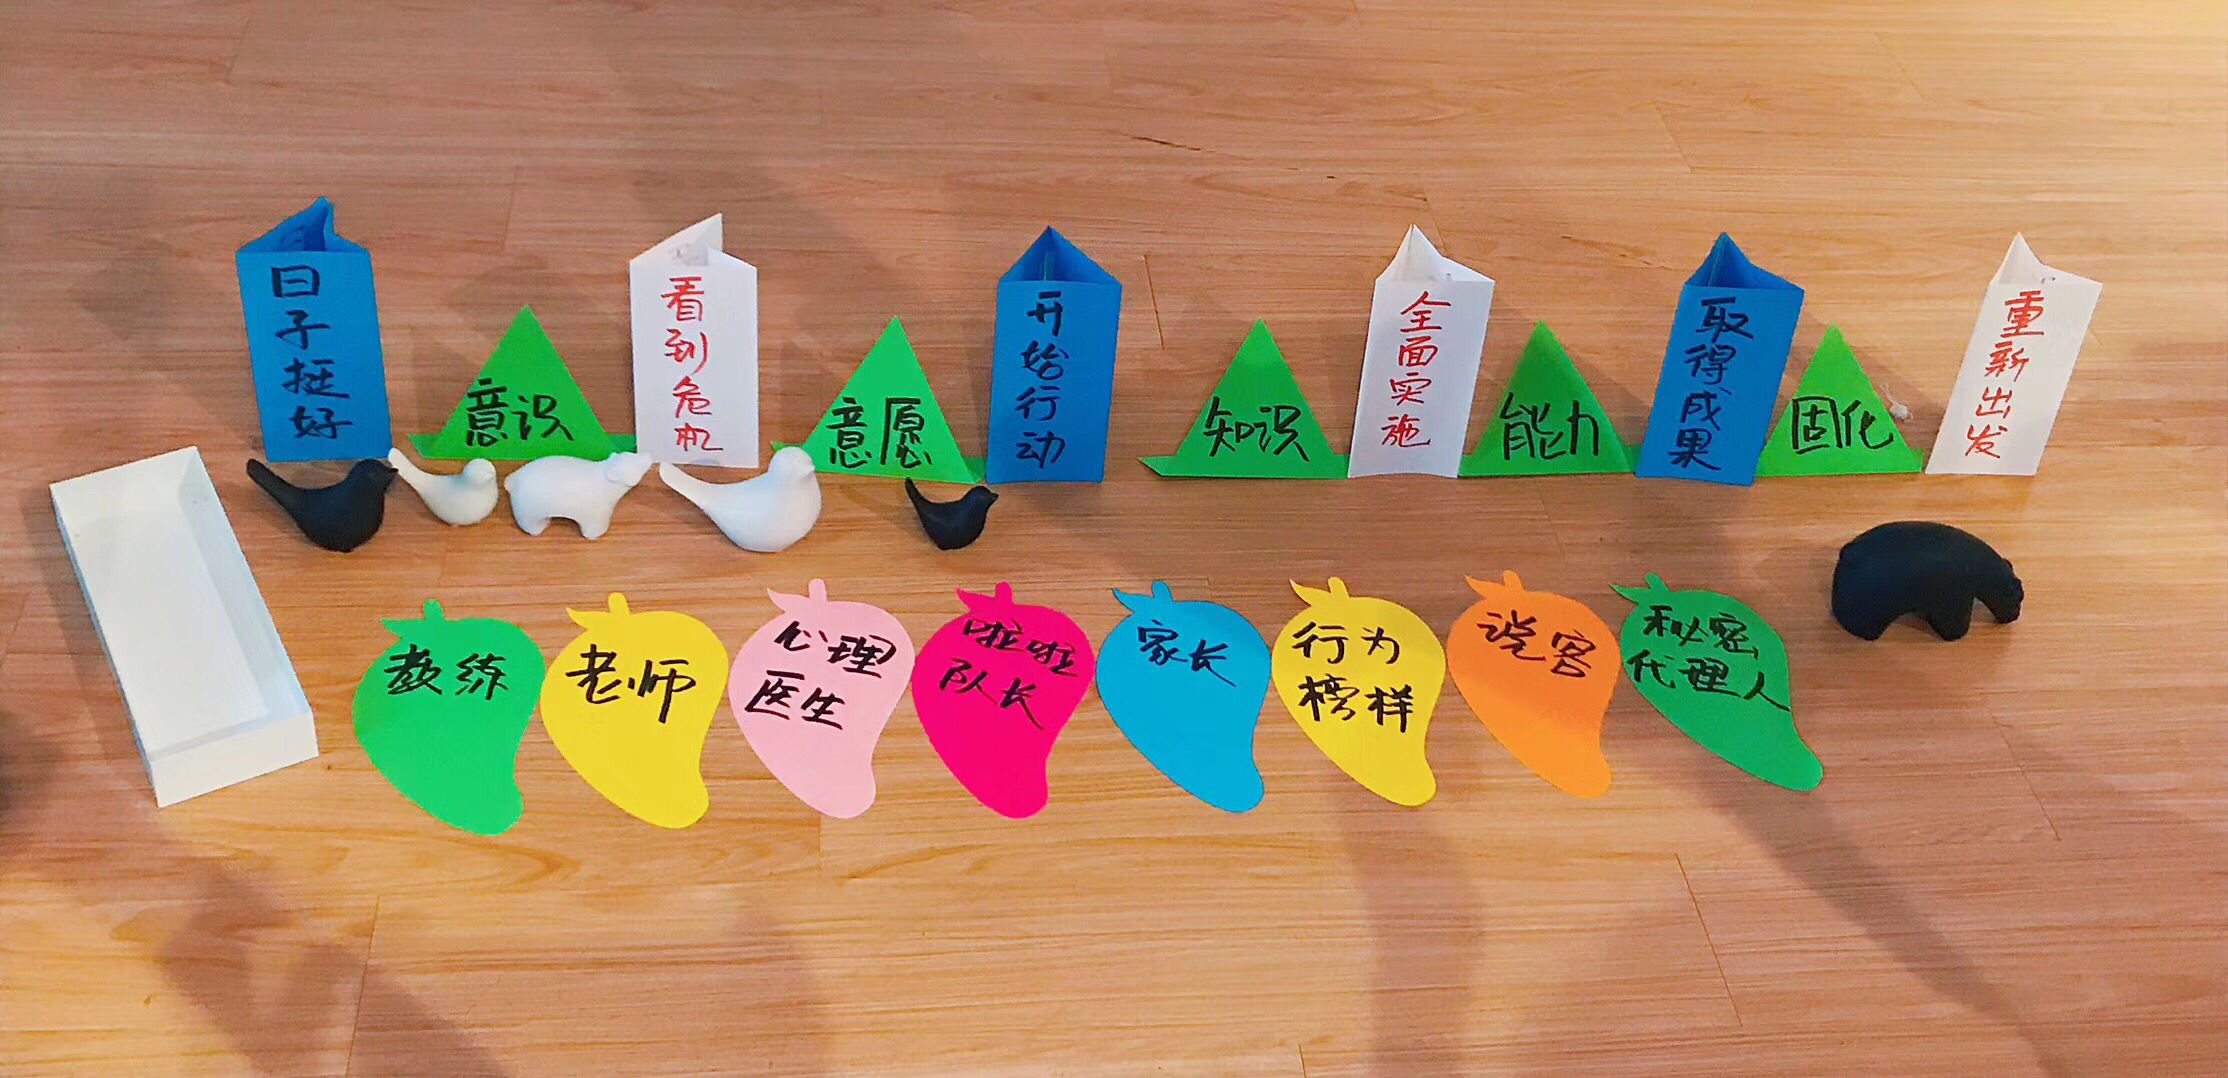 日子挺好
意识
看到危机
意愿
开始行动
知识
全面实施
能力
取得成果
固化
重新出发
教练
老师
心理
医生
啦啦
队长
家长
行为
榜样
说客
秘密
代理人